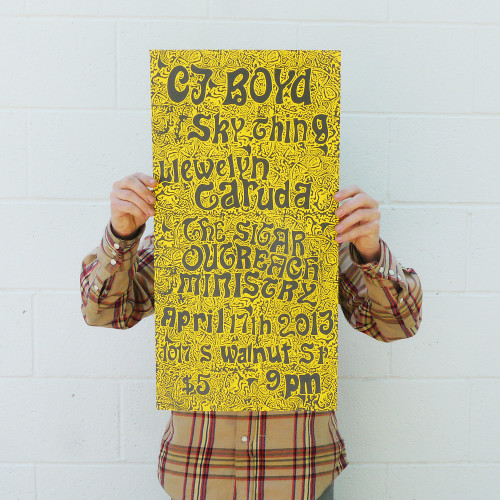 CJ BOYD
Sky Thing
Llewelyn
Garuda
The Sitar
Outreach
Ministry
April 17th 2013
1017 S walnut St
$5 9pm